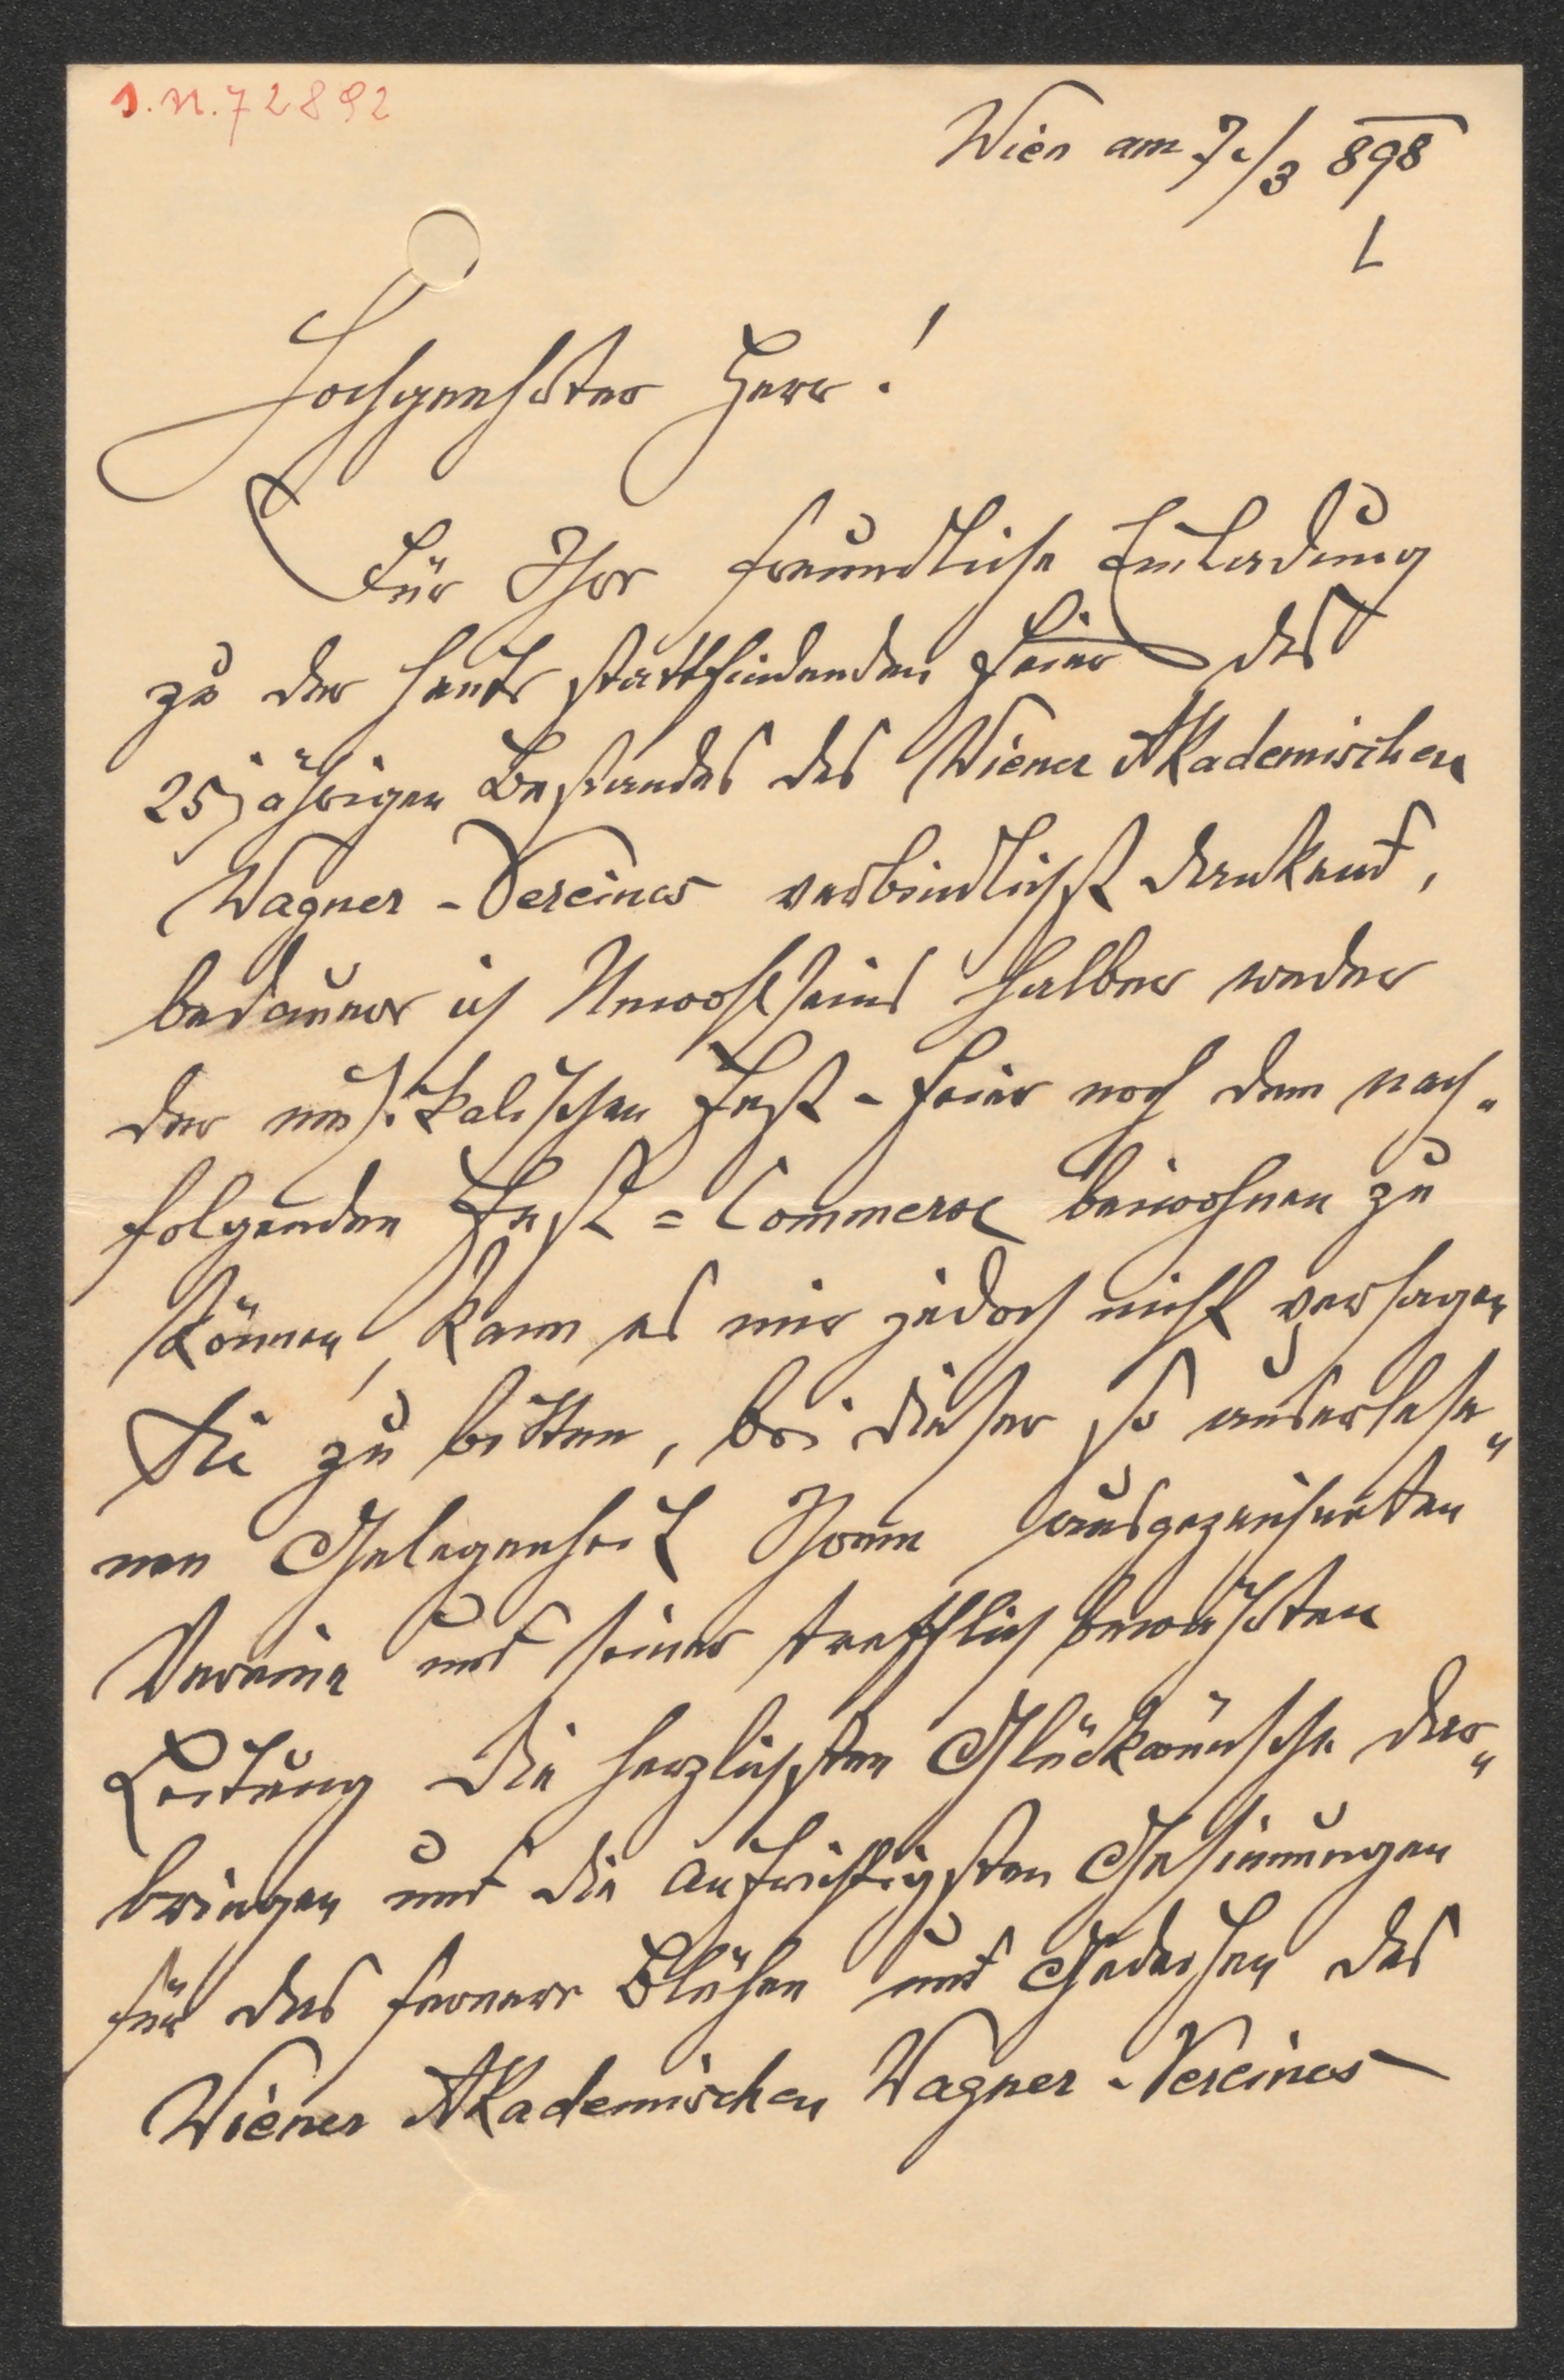 I.N. 72892
Wien am 7./3 898
L
Hochgeehrter Herr!
Für Ihre freundliche Einladung
zu der heute stattfindenden Feier des
25jährigen Bestandes des Wiener Akademischen
Wagner-Vereines verbindlichst dankend,
bedauere ich Unwohlseins halber weder
der musikalischen Fest-Feier noch dem nach„
folgenden Fest=Commerse beiwohnen zu
können, kann es mir jedoch nicht versagen
Sie zu bitten, bei dieser so auserlese„
nen Gelegenheit Ihrem ausgezeichneten
Vereine und seiner trefflich bewährten
Leitung die herzlichsten Glückwünsche dar„
bringen und die aufrichtigsten Gesinnungen
für das fernere Blühen und Gedeihen des
Wiener Akademischen Wagner-Vereines